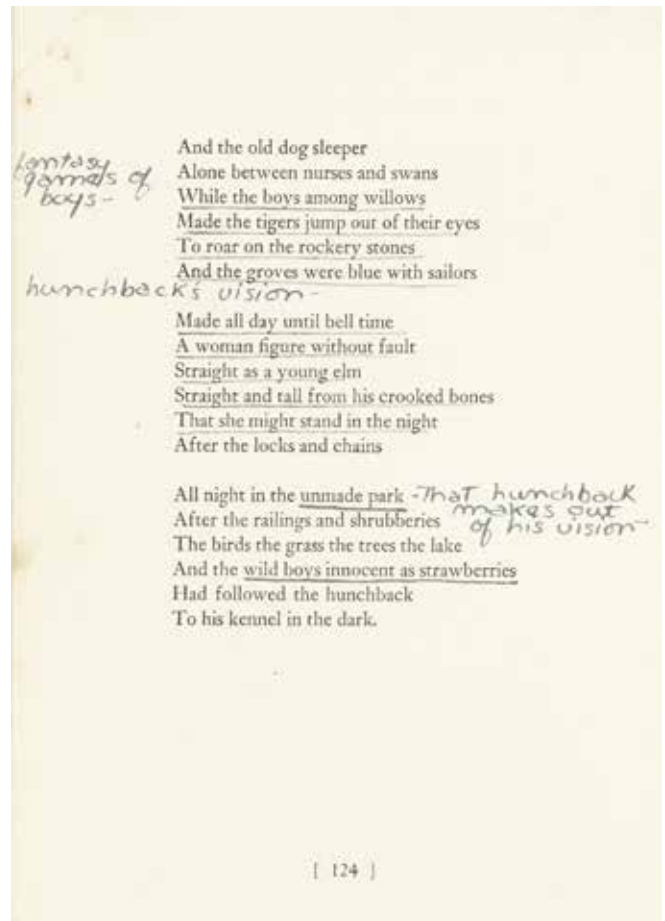 And the old dog sleeper
fantasy
Alone between nurses and swans
games of
While the boys among willows
boys-
Made the tigers jump out of their eyes
To roar on the rockery stones
And the groves were blue with sailors
hunchback's vision-
Made all day until bell time
A woman figure without fault
Straight as a young elm
Straight and tall from his crooked bones
That she might stand in the night
After the locks and chains
All night in the unmade park -That hunchback
makes out
After the railings and shrubberies
of his vision-
The birds the grass the trees the lake
And the wild boys innocent as strawberries
Had followed the hunchback
To his kennel in the dark.
[ 124 ]